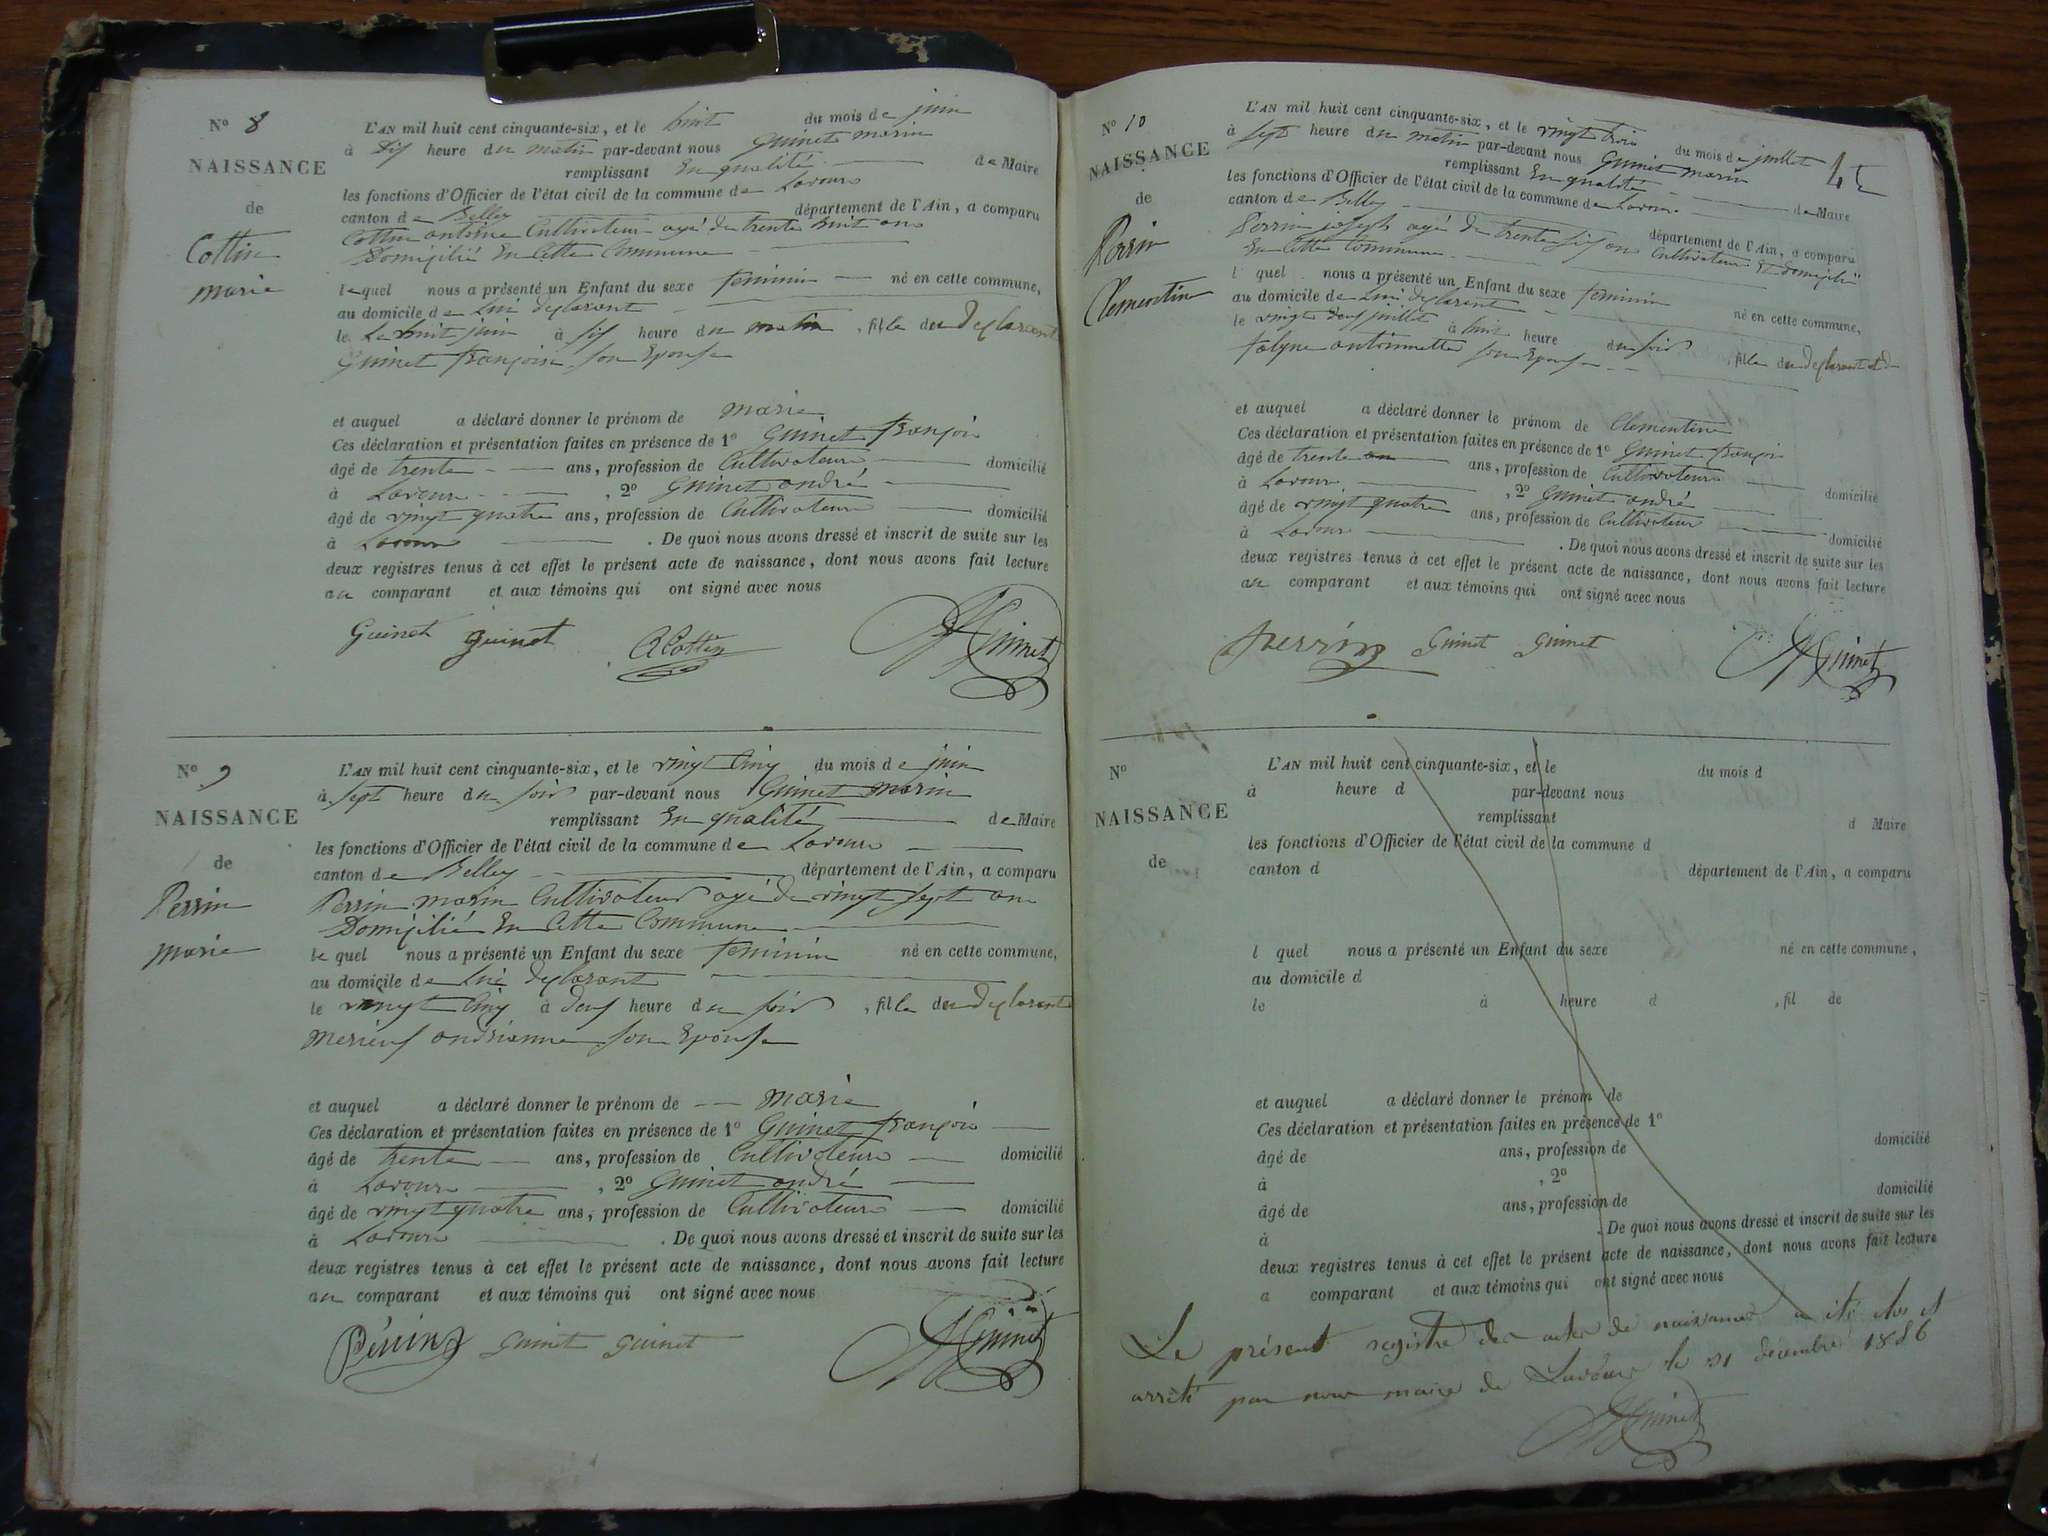 N° 8
NAISSANCE
de
Cottin
marie
L'AN mil huit cent cinquante-six, et le huit du mois de juin
à dix heure du matin par-devant nous Guinet marin
remplissant En qualité de Maire
les fonctions d'Officier de l'état civil de la commune de Lavour
canton de Belley département de l'Ain, a comparu
Cottin antoine Cultivateur agé de trente huit ans
Domicilié En Cette Commune
lequel nous a présenté un Enfant du sexe feminin né en cette commune,
au domicile de Lui declarant
le Le huit juin à six heure du matin, fille du declarant
Guinet françoise son Epouse
et auquel a déclaré donner le prénom de marie
Ces déclaration et présentation faites en présence de 1° Guinet françois
âgé de trente ans, profession de Cultivateur domicilié
à Lavour, 2° Guinet andré
âgé de vingt quatre ans, profession de Cultivateur domicilié
à Lavour. De quoi nous avons dressé et inscrit de suite sur les
deux registres tenus à cet effet le présent acte de naissance, dont nous avons fait lecture
au comparant et aux témoins qui ont signé avec nous
Guinet guinet A Cottin Guinet
N° 9
NAISSANCE
de
Perrin
marie
L'AN mil huit cent cinquante-six, et le vingt Cinq du mois de juin
à sept heure du soir par-devant nous Guinet marin
remplissant En qualité de Maire
les fonctions d'Officier de l'état civil de la commune de Lavour
canton de Belley département de l'Ain, a comparu
Perrin marin Cultivateur agé de vingt sept ans
Domicilié En Cette Commune
le quel nous a présenté un Enfant du sexe feminin né en cette commune,
au domicile de Lui declarant
le vingt Cinq à deux heure du soir, fille du declarant
andrianne son Epouse
et auquel a déclaré donner le prénom de marie
Ces déclaration et présentation faites en présence de 1° Guinet françois
âgé de trente ans, profession de Cultivateur domicilié
à Lavour, 2° Guinet andré
âgé de vingt quatre ans, profession de Cultivateur domicilié
à Lavour. De quoi nous avons dressé et inscrit de suite sur les
deux registres tenus à cet effet le présent acte de naissance, dont nous avons fait lecture
au comparant et aux témoins qui ont signé avec nous
Perrin Guinet Guinet Guinet
N° 10
NAISSANCE
de
Perrin
Clementine
L'AN mil huit cent cinquante-six, et le vingt trois du mois de juillet
à sept heure du matin par-devant nous Guinet marin
remplissant En qualité de Maire
les fonctions d'Officier de l'état civil de la commune de Lavour
canton de Belley département de l'Ain, a comparu
Perrin joseph agé de trente six ans Cultivateur Et domicilié
En Cette Commune
l quel nous a présenté un Enfant du sexe feminin né en cette commune,
au domicile de Lui declarant
le vingt deux juillet à huit heure du soir, fille du declarant et de
antoinnette son Epouse
et auquel a déclaré donner le prénom de Clementine
Ces déclaration et présentation faites en présence de 1° Guinet françois
âgé de trente ans, profession de Cultivateur domicilié
à Lavour, 2° Guinet andré
âgé de vingt quatre ans, profession de Cultivateur domicilié
à Lavour. De quoi nous avons dressé et inscrit de suite sur les
deux registres tenus à cet effet le présent acte de naissance, dont nous avons fait lecture
au comparant et aux témoins qui ont signé avec nous
Perrin Guinet Guinet Guinet
N°
NAISSANCE
de
L'AN mil huit cent cinquante-six, et le du mois d
à heure d par-devant nous
remplissant d Maire
les fonctions d'Officier de l'état civil de la commune d
canton d département de l'Ain, a comparu
l quel nous a présenté un Enfant du sexe né en cette commune,
au domicile d
le à heure d, fil de
et auquel a déclaré donner le prénom de
Ces déclaration et présentation faites en présence de 1°
âgé de ans, profession de domicilié
à, 2°
âgé de ans, profession de domicilié
à. De quoi nous avons dressé et inscrit de suite sur les
deux registres tenus à cet effet le présent acte de naissance, dont nous avons fait lecture
a comparant et aux témoins qui ont signé avec nous
Le présent registre des actes de naissance a été clos et
arrêté par nous maire de Lavour le 31 décembre 1856
Guinet